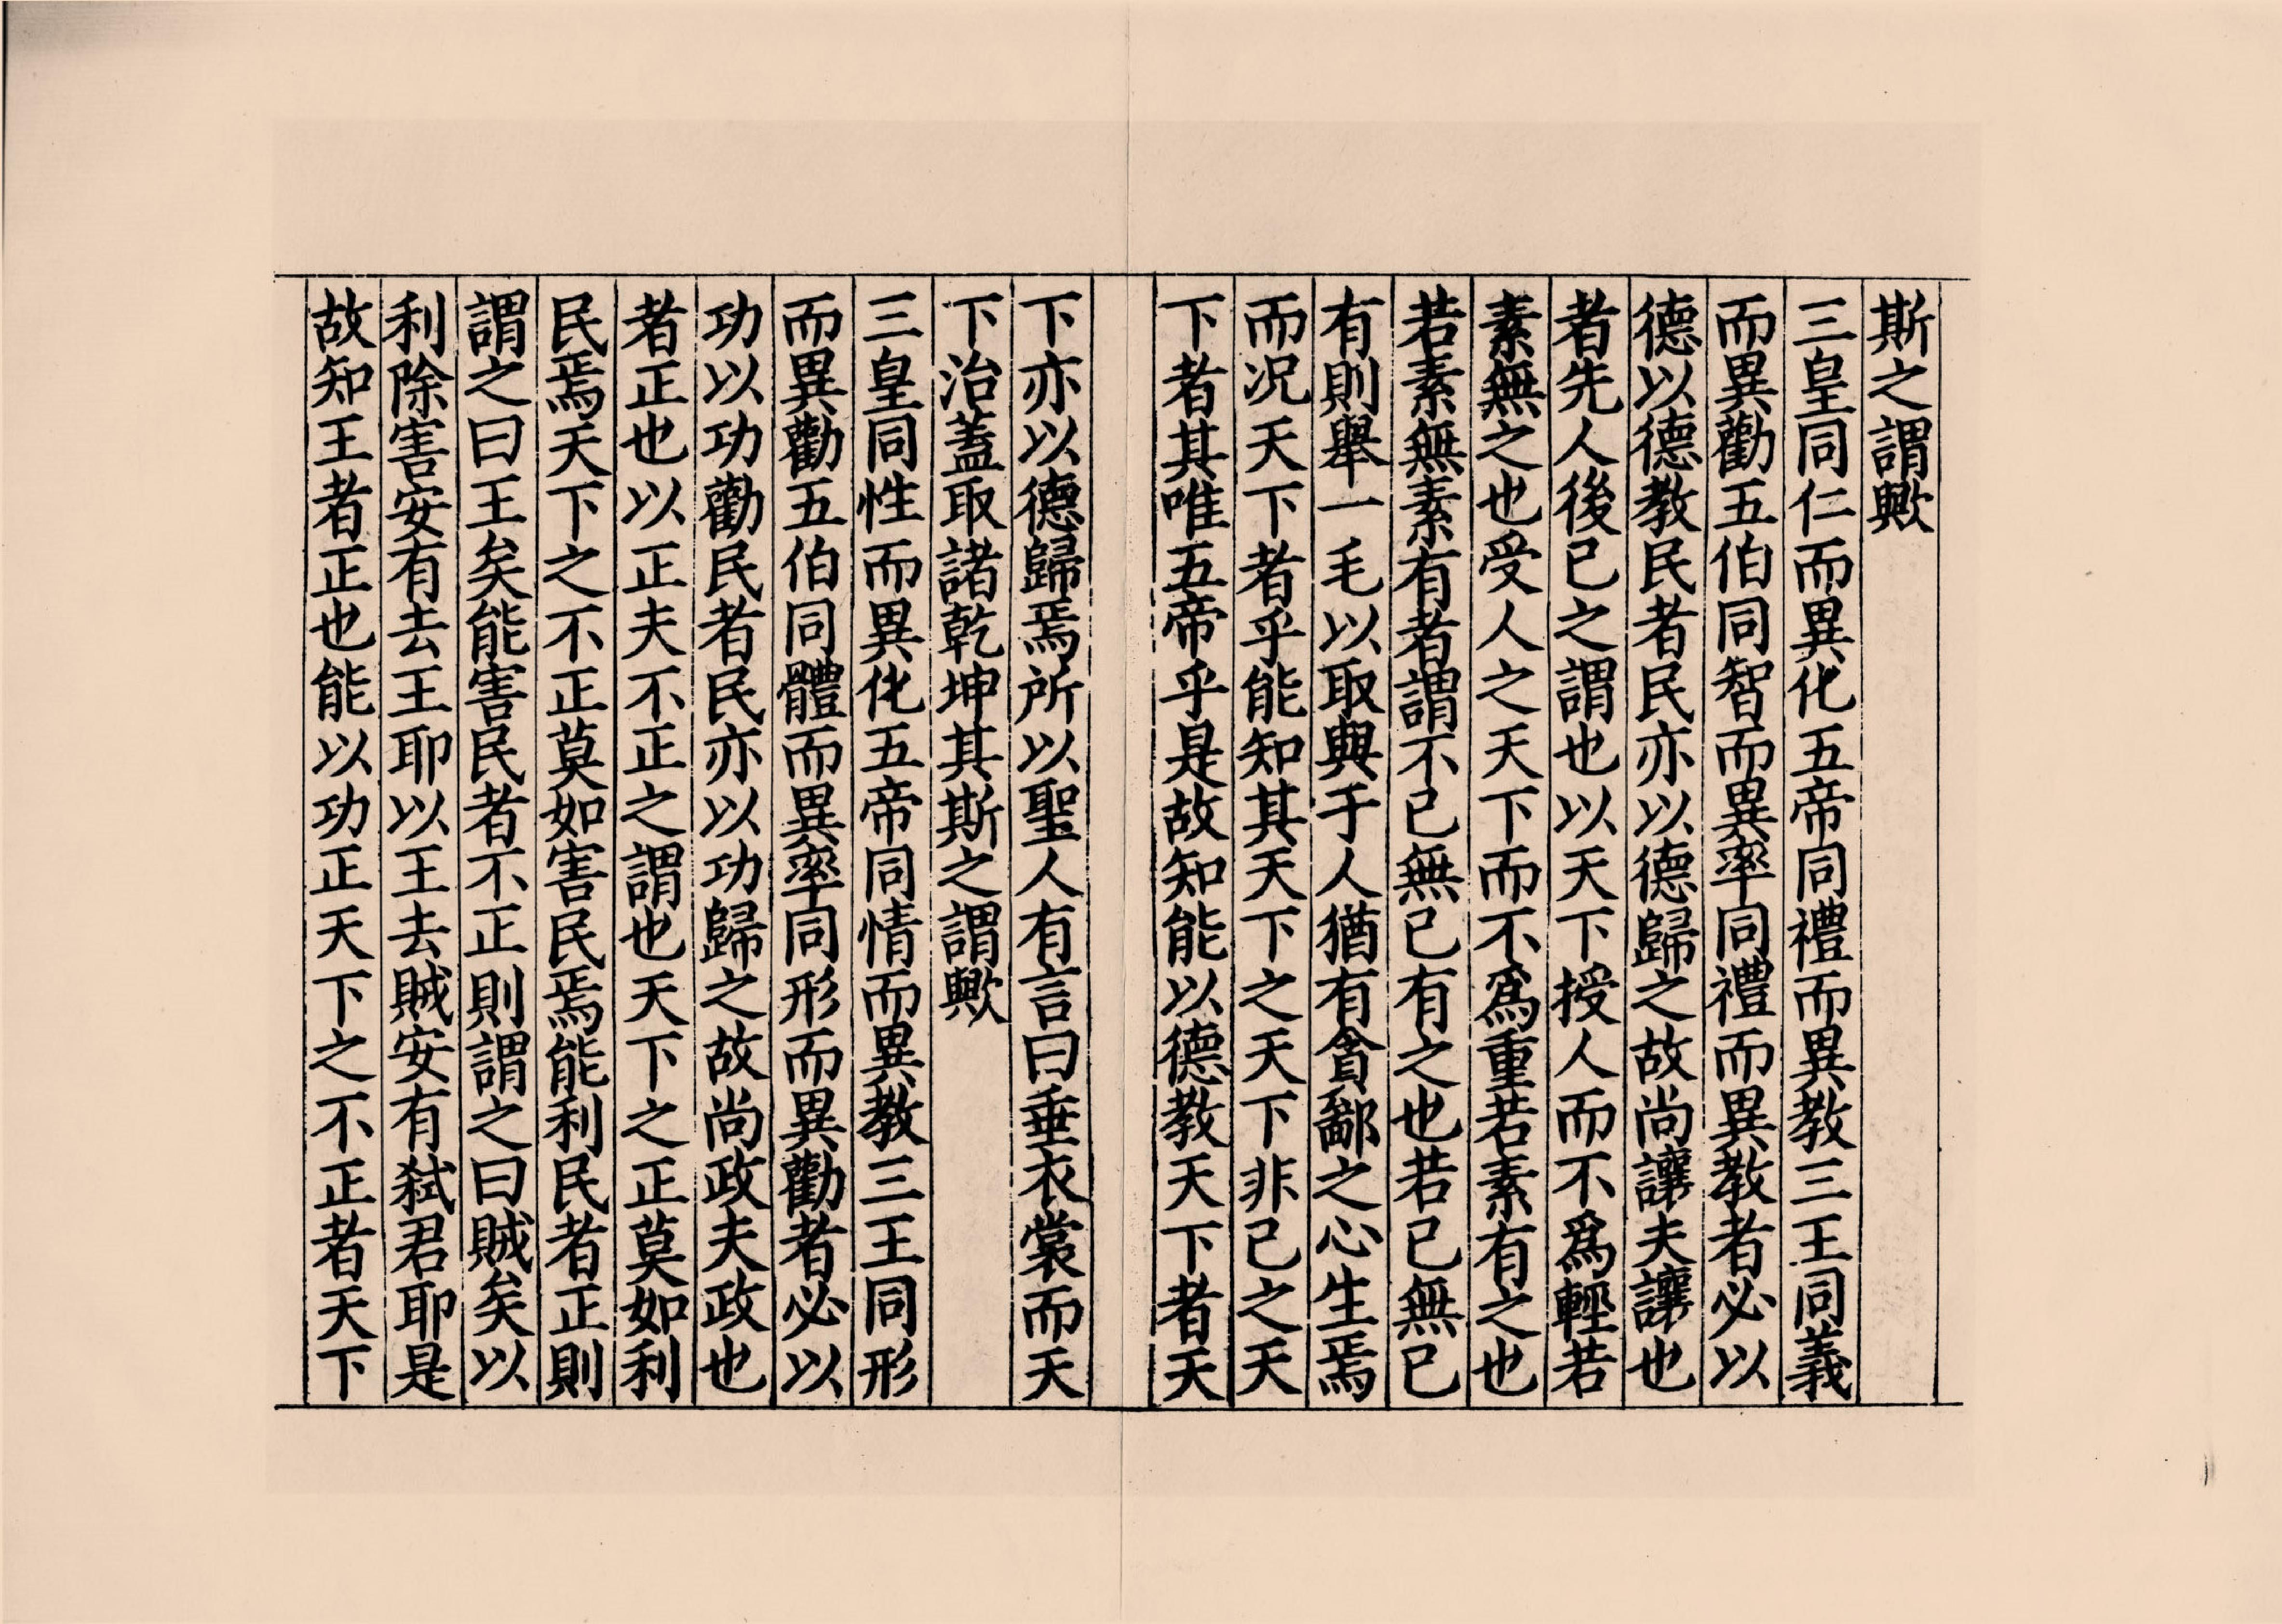 斯之謂歟
三皇同仁而異化五帝同禮而異教三王同義
而異勸五伯同智而異率同禮而異教者必以
德以德教民者民亦以德歸之故尚讓夫讓也
者先人後已之謂也以天下授人而不爲輕若
素無之也受人之天下而不爲重若素有之也
若素無素有者謂不已無已有之也若已無已
有則舉一毛以取與于人猶有貪鄙之心生焉
而况天下者乎能知其天下之天下非已之天
下者其唯五帝乎是故知能以德教天下者天
下亦以德歸焉所以聖人有言曰垂衣裳而天
下治蓋取諸乾坤其斯之謂歟
三皇同性而異化五帝同情而異教三王同形
而異勸五伯同體而異率同形而異勸者必以
功以功勸民者民亦以功歸之故尚政夫政也
者正也以正夫不正之謂也天下之正莫如利
民焉天下之不正莫如害民焉能利民者正則
謂之曰王矣能害民者不正則謂之曰賊矣以
利除害安有去王耶以王去賊安有弑君耶是
故知王者正也能以功正天下之不正者天下